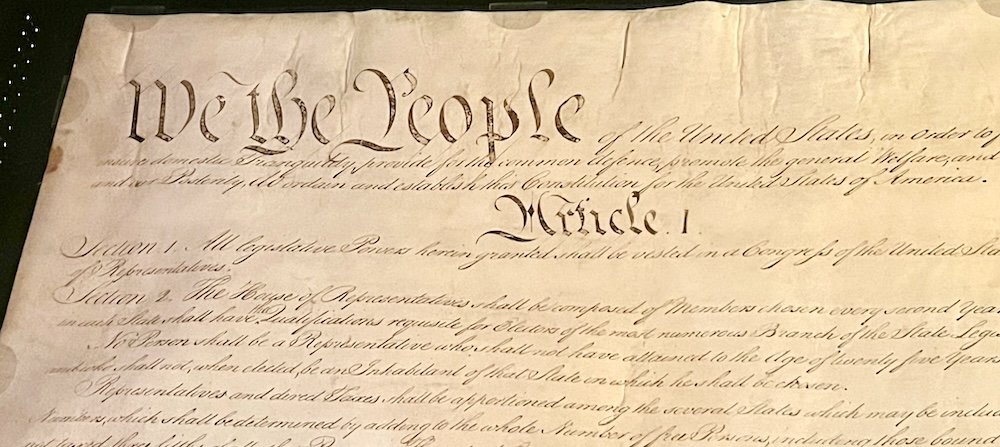 We the People of the United States, in order to
insure domestic Tranquility, provide for the common defence, promote the general Welfare, and
and our Posterity, do ordain and establish this Constitution for the United States of America.
Article. I.
Section 1. All legislative Powers herein granted shall be vested in a Congress of the United Sta
of Representatives.
Section 2. The House of Representatives shall be composed of Members chosen every second Year
in each State shall have the Qualifications requisite for Electors of the most numerous Branch of the State Legis
No Person shall be a Representative who shall not have attained to the Age of twenty five Years
and who shall not, when elected, be an Inhabitant of that State in which he shall be chosen.
Representatives and direct Taxes shall be apportioned among the several States which may be includ
Numbers, which shall be determined by adding to the whole Number of free Persons, including those boun